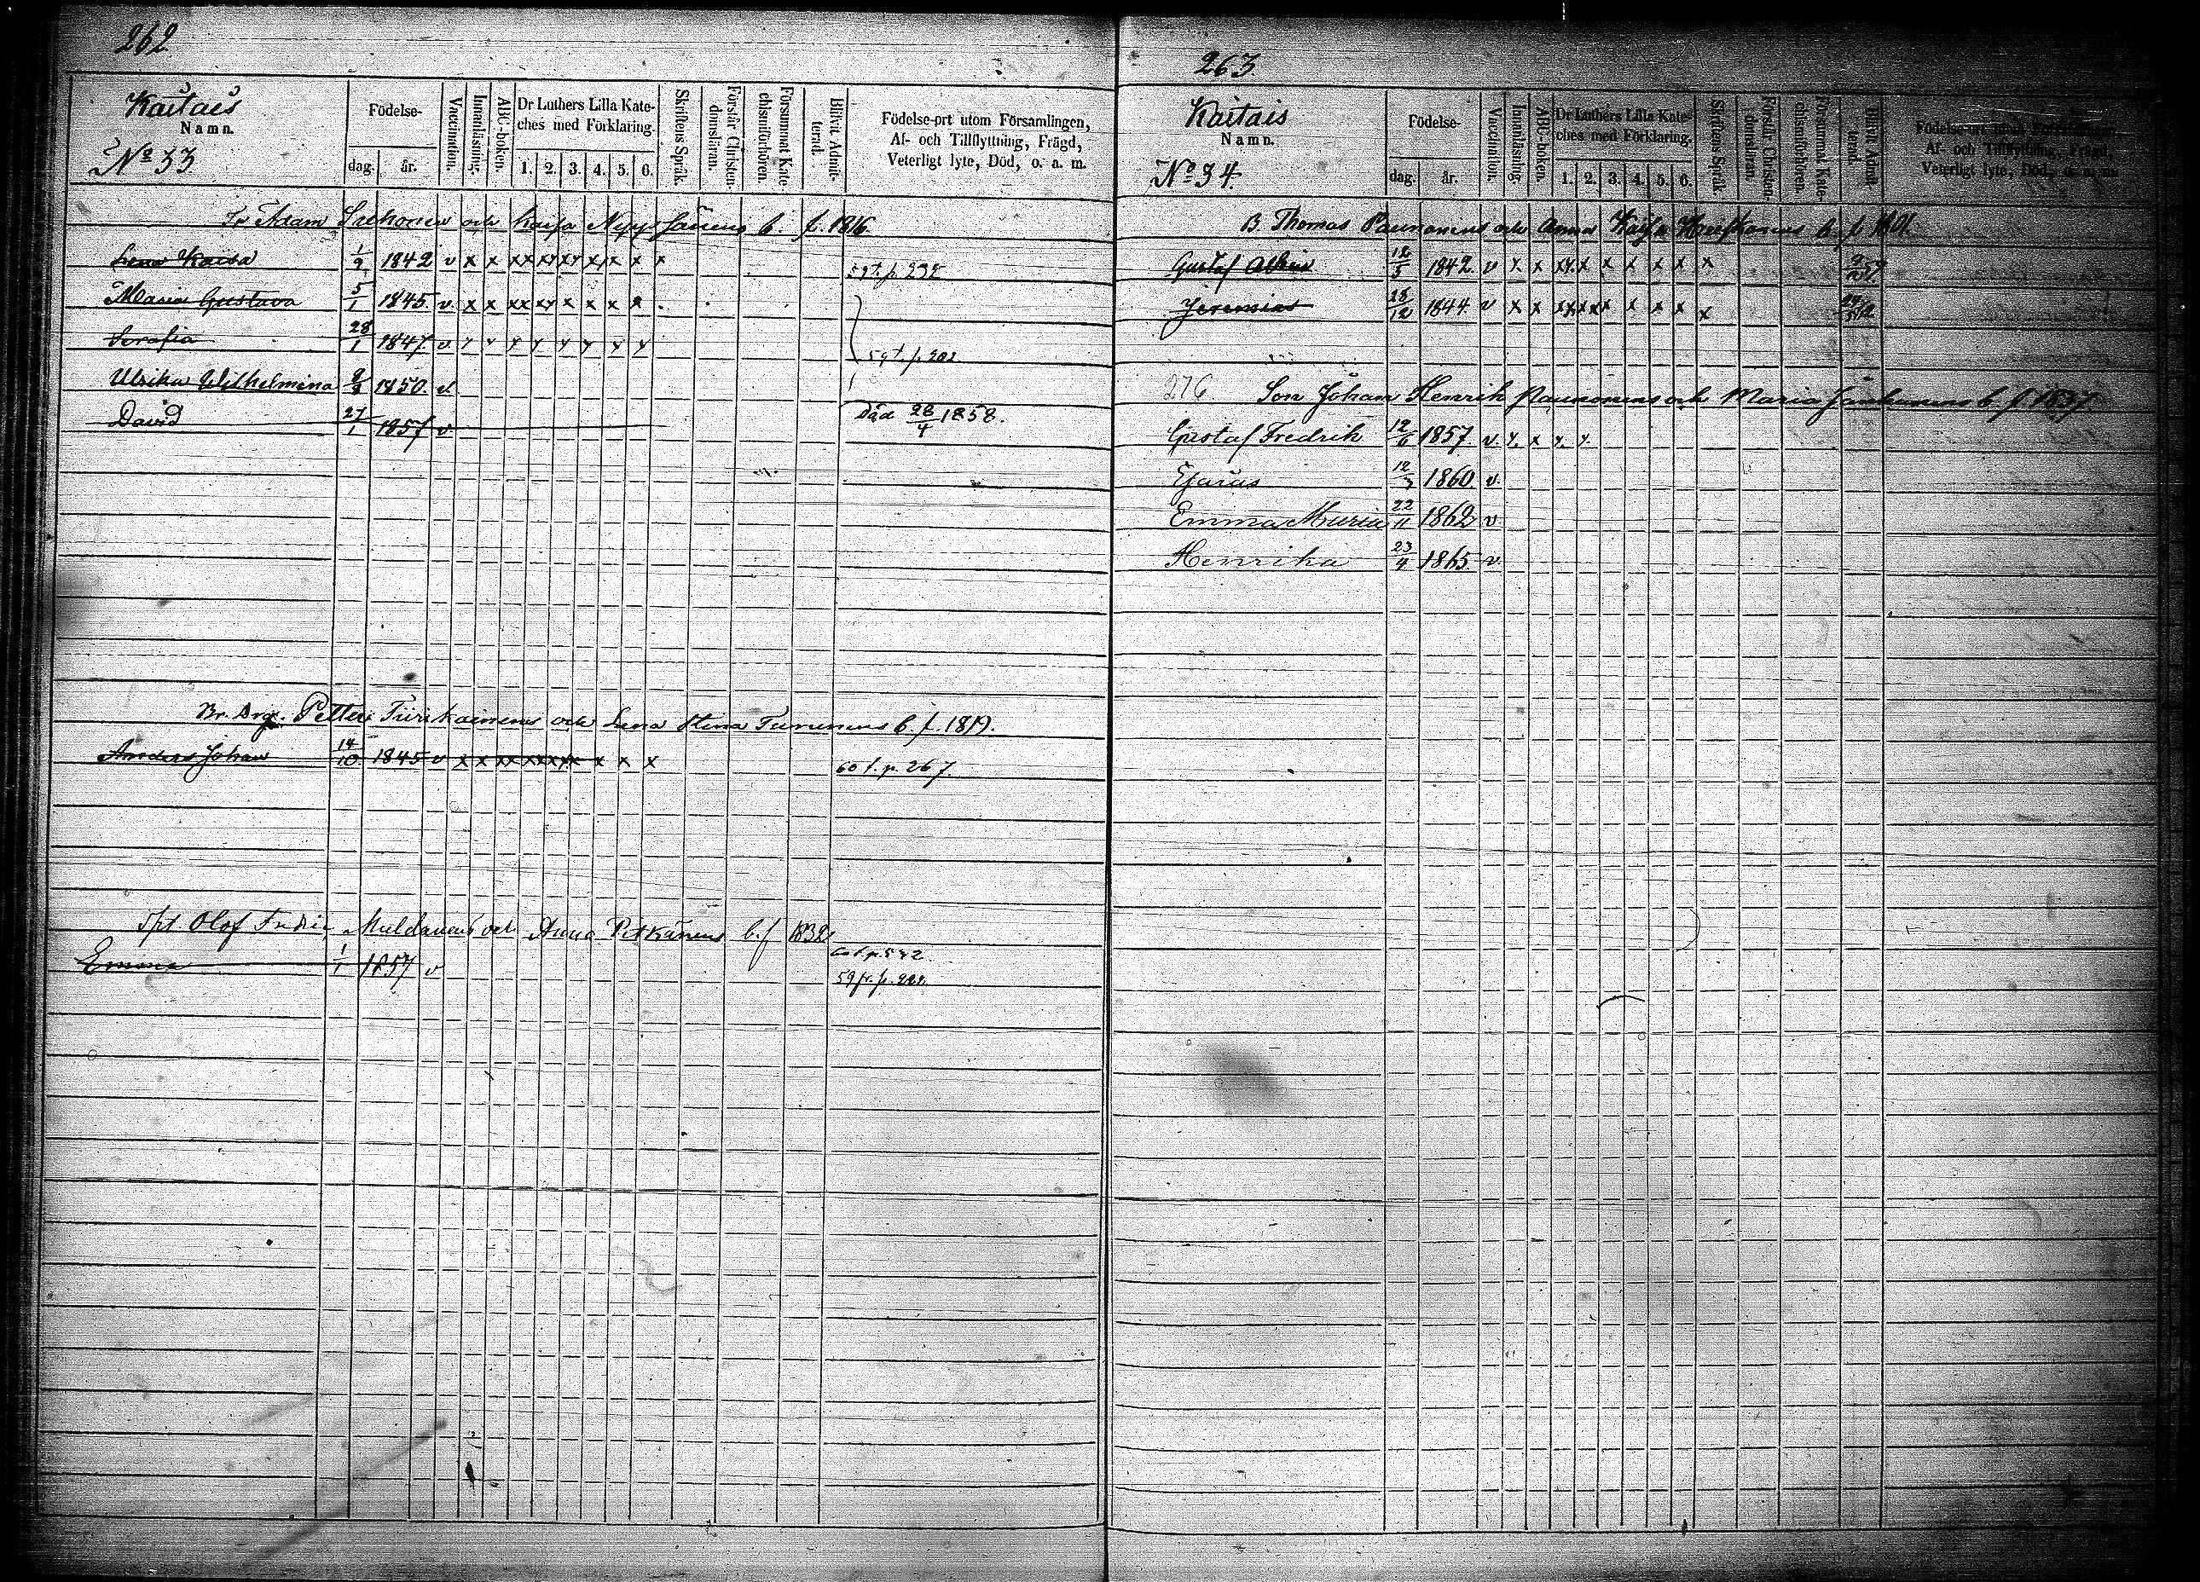 262
Kaitais
Namn.
No 33
Födelse-
dag. år.
Vaccination.
Innanläsning.
ABC-boken.
Dr Luthers Lilla Kate-
ches med Förklaring.
1. 2. 3. 4. 5. 6.
Skriftens Språk.
Förstår Christen-
domsläran.
Försummat Kate-
chismiförhören.
Blifvit Admit-
terad.
Födelse-ort utom Församlingen,
Af- och Tillflyttning, Frägd,
Veterligt lyte, Död, o. a. m.
Adam och Kaisa b. f. 1816.
Lena Kaisa 1/9 1842 v x x xx xx xx xx x x x 59 t. p. 232
Maria Gustava 5/1 1845 v x x xx xx x x x x
Serafia 28/1 1847 v x x x x x x x x 59 t. p. 202
Ulrika Wilhelmina 1850 v
David 27/1 1857 v Död 28/4 1858.
Petter Turikainens och Lena Stina b. f. 1819.
Anders Johan 14/10 1845 v x x xx xx xx xx x x x 60 t. p. 267
Olof Muldanens och Anna Pitkänens b. f. 1832
Emma 1/1 1857 v 60 t. p. 542
59 fr. p. 222
263
Kaitais
Namn.
No 34.
Födelse-
dag. år.
Vaccination.
Innanläsning.
ABC-boken.
Dr Luthers Lilla Kate-
ches med Förklaring.
1. 2. 3. 4. 5. 6.
Skriftens Språk.
Förstår Christen-
domsläran.
Försummat Kate-
chismiförhören.
Blifvit Admit-
terad.
Födelse-ort utom Församlingen,
Af- och Tillflyttning, Frägd,
Veterligt lyte, Död, o. a. m.
B. Thomas Paunonens och Anna Kaisa b. f. 1801.
Gustaf Albin 12/5 1842 v x x xx x x x x x x
Jeremias 28/12 1844 v x x xx xx x x x x x
276 Son Johan Henrik Paunonens och Maria b. f. 1837.
Gustaf Fredrik 12/6 1857 v x x x x
Efarus 1860 v
Emma Maria 22/11 1862 v
Henrika 23/4 1865 v